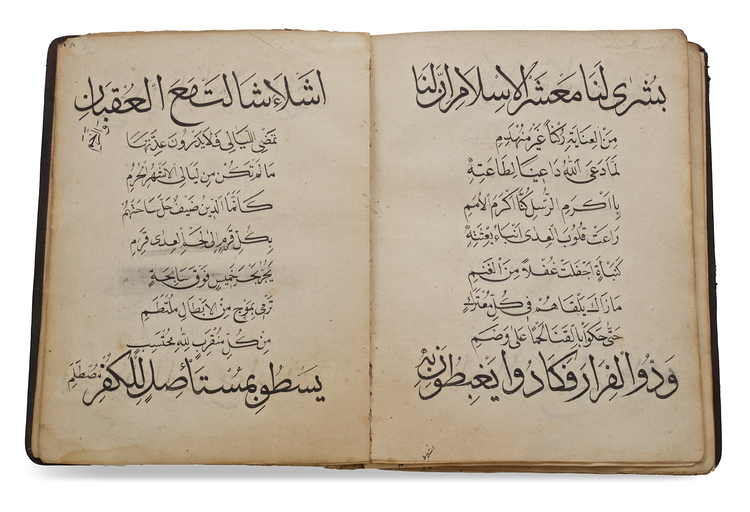 بُشرى لنا معشر الاسلام ان لنا
من العناية ركنا غير منهدم
لما دعى الله داعينا لطاعته
باكرم الرسل كنا اكرم الامم
راعت قلوب العدى انباء بعثته
كنبأة اجفلت غفلا من الغنم
ما زال يلقاهم في كل معترك
حتى حكوا بالقنا لحما على وضم
ودوا الفرار فكادوا يغبطون به
اشلاء
اشلاء شالت مع العقبان
والرخم
تمضي الليالي ولا يدرون عدتها
ما لم تكن من ليالي الاشهر الحرم
كأنما الدين ضيف حل ساحتهم
بكل قرم الى لحم العدى قرم
يجر بحر خميس فوق سابحة
ترمي بموج من الابطال ملتطم
من كل منتدب لله محتسب
يسطو بمستأصل للكفر مصطلم